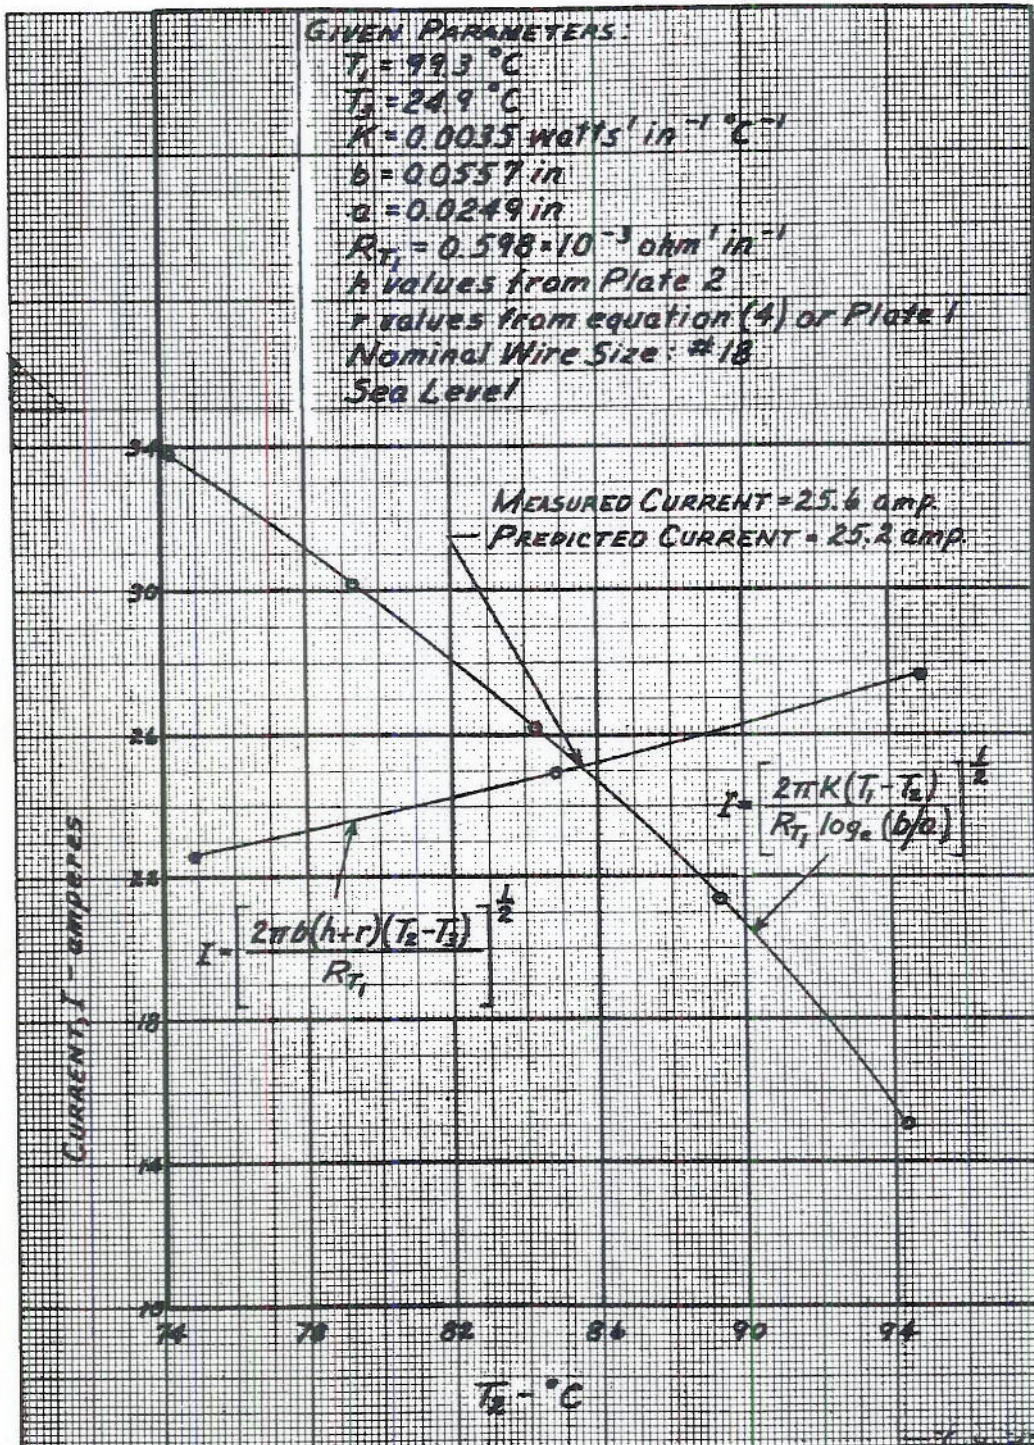 GIVEN PARAMETERS:
T₁ = 99.3 °C
T₃ = 24.9 °C
K = 0.0035 watts¹ in⁻¹ °C⁻¹
b = 0.0557 in
a = 0.0249 in
R_T₁ = 0.598×10⁻³ ohm¹ in⁻¹
h values from Plate 2
r values from equation (4) or Plate 1
Nominal Wire Size: #18
Sea Level
34
MEASURED CURRENT = 25.6 amp.
PREDICTED CURRENT = 25.2 amp.
30
26
I = [2πK(T₁-T₂) / R_T₁ logₑ (b/a)]^1/2
22
I = [2πb(h+r)(T₂-T₃) / R_T₁]^1/2
CURRENT, I - amperes
18
14
10
74 78 82 86 90 94
T₂ - °C